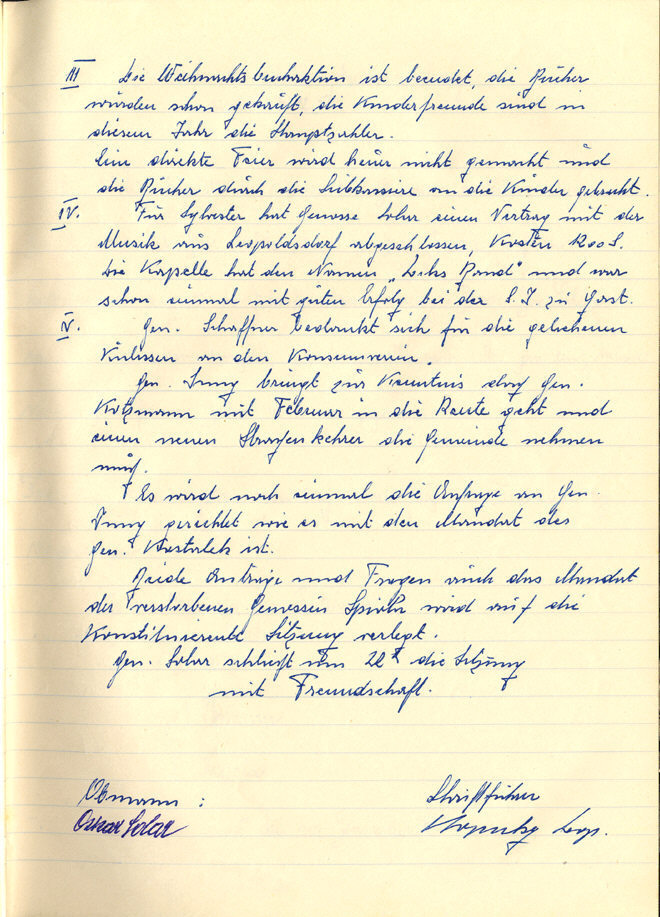 III Die Weihnachtsbuchaktion ist beendet, die Bücher
wurden schon gekauft, die Kinderfreunde sind in
diesem Jahr die Hauptzahler.
Eine direkte Feier wird heuer nicht gemacht und
die Bücher durch die Subkassiere an die Kinder gebracht.
IV. Für Sylvester hat Genosse Solar einen Vertrag mit der
Musik aus Leopoldsdorf abgeschlossen, Kosten 1200 S.
Die Kapelle hat den Namen „Sechs Band" und war
schon einmal mit guten Erfolg bei der S.J. zu Gast.
V. Gen. Schaffner bedankt sich für die geliehenen
Kulissen an den Konsumverein.
Gen. bringt zur Kenntnis das Gen.
Kotzmann mit Februar in die Rente geht und
einen neuen Strassenkehrer die Gemeinde nehmen
muß.
Es wird noch einmal die Anfrage an Gen.
gerichtet wie es mit den Mandat des
Gen. ist.
Beide Anträge und Fragen auch das Mandat
der verstorbenen Genossin wird auf die
Konstituierente Sitzung verlegt.
Gen. Solar schließt um 22h die Sitzung
mit Freundschaft.
Obmann: Schriftführer
Oskar Solar Leop.